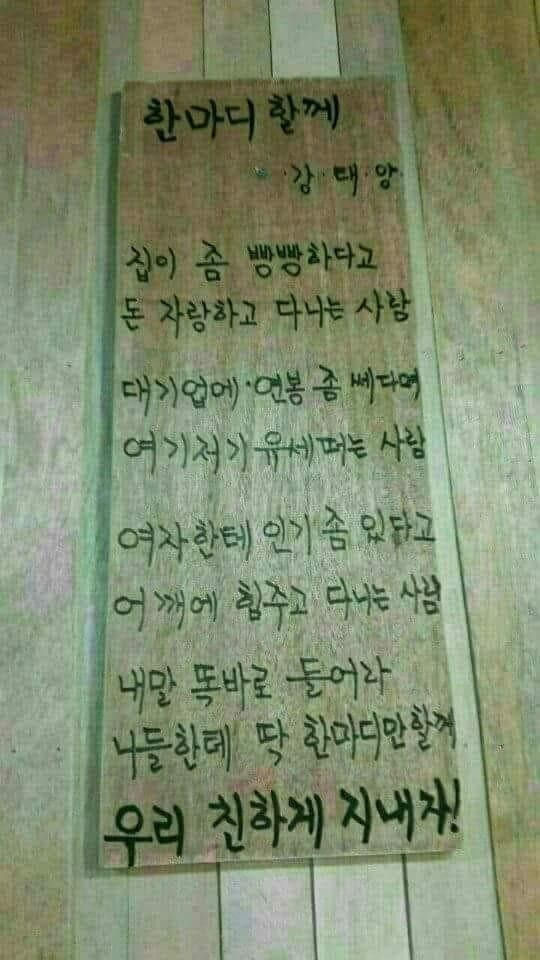 한마디 할께
·강·태·양·
집이 좀 빵빵하다고
돈 자랑하고 다니는 사람
대기업에·연봉 좀 쎄다며
여기저기 유세떠는 사람
여자한테 인기 좀 있다고
어깨에 힘주고 다니는 사람
내말 똑바로 들어라
너들한테 딱 한마디만할께
우리 친하게 지내자!